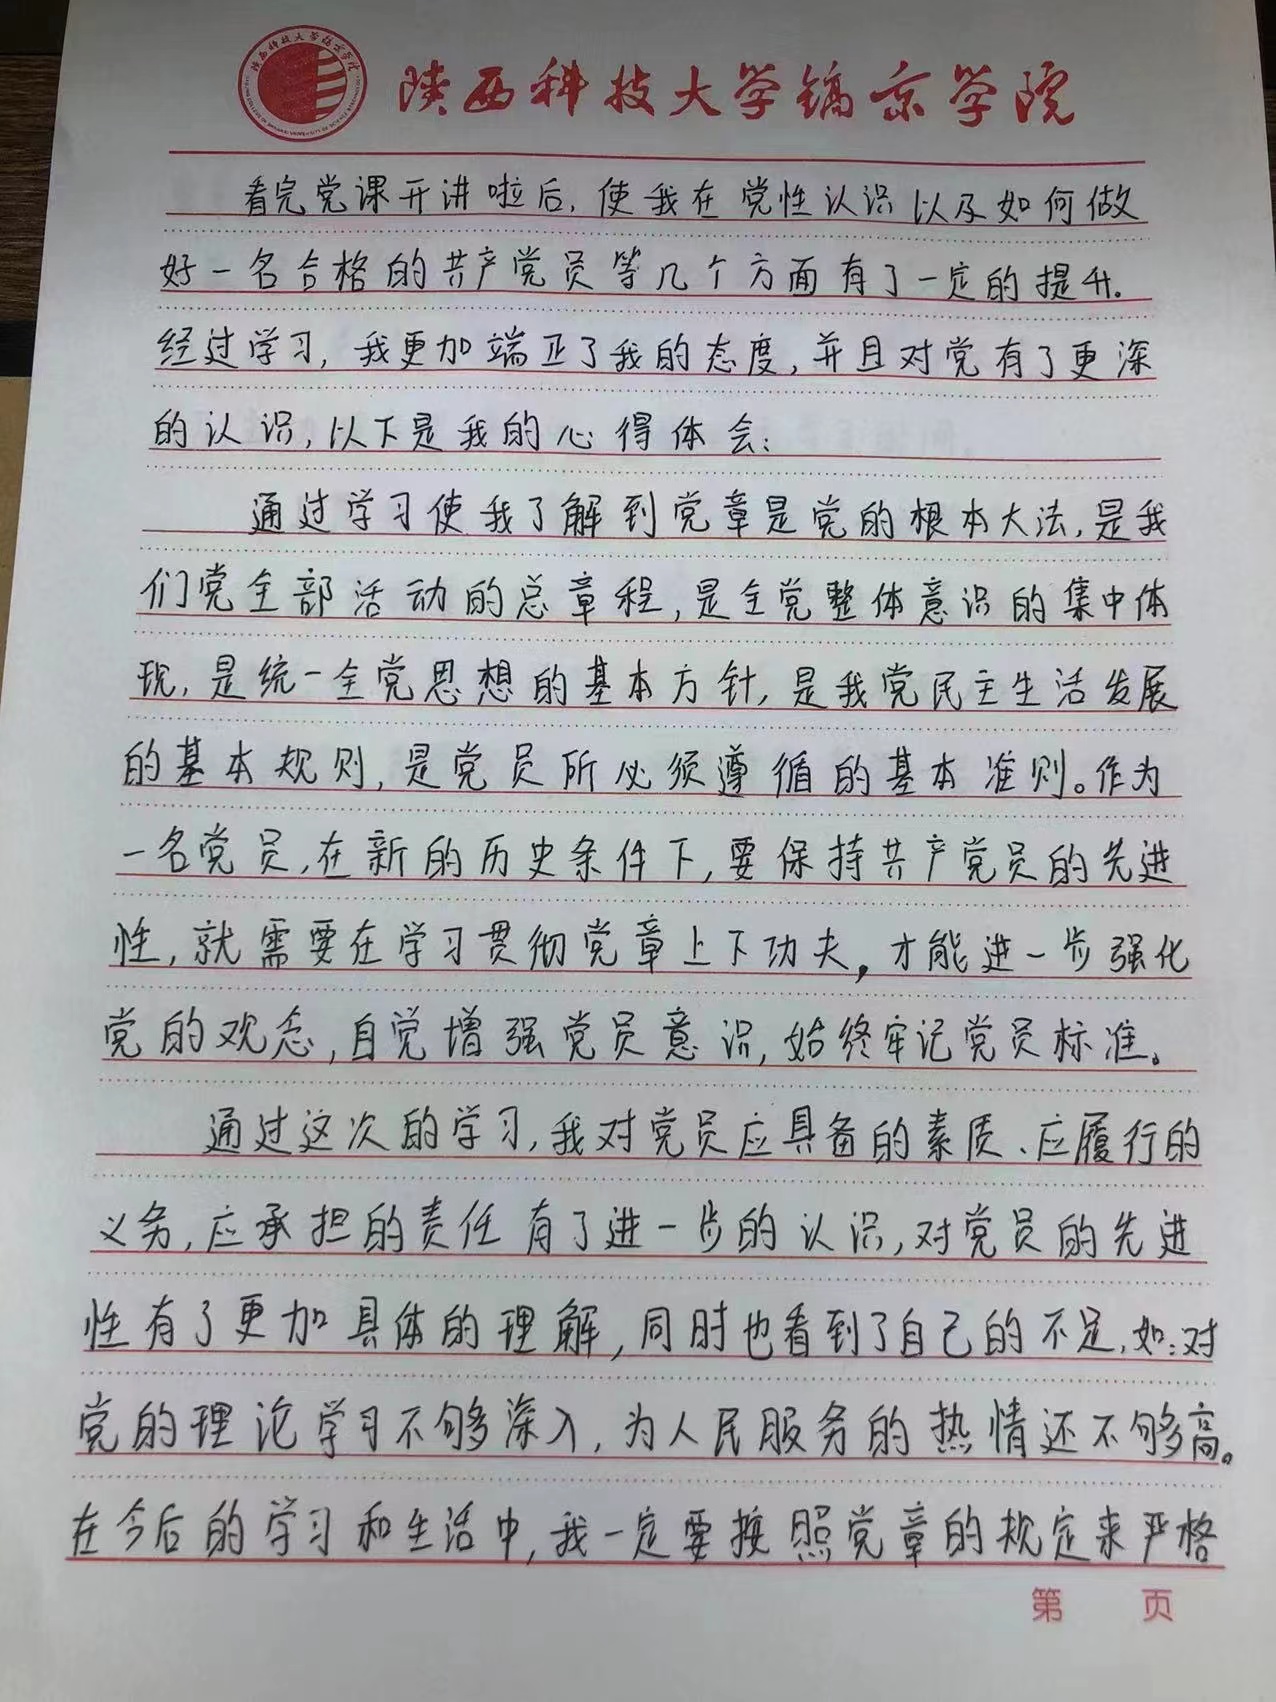 陕西科技大学镐京学院
看完党课开讲啦后,使我在党性认识以及如何做
好一名合格的共产党员等几个方面有了一定的提升.
经过学习,我更加端正了我的态度,并且对党有了更深
的认识,以下是我的心得体会:
通过学习使我了解到党章是党的根本大法,是我
们党全部活动的总章程,是全党整体意识的集中体
现,是统一全党思想的基本方针,是我党民主生活发展
的基本规则,是党员所必须遵循的基本准则。作为
一名党员,在新的历史条件下,要保持共产党员的先进
性,就需要在学习贯彻党章上下功夫,才能进一步强化
党的观念,自觉增强党员意识,始终牢记党员标准。
通过这次的学习,我对党员应具备的素质、应履行的
义务,应承担的责任有了进一步的认识,对党员的先进
性有了更加具体的理解,同时也看到了自己的不足,如:对
党的理论学习不够深入,为人民服务的热情还不够高。
在今后的学习和生活中,我一定要按照党章的规定来严格
第 页